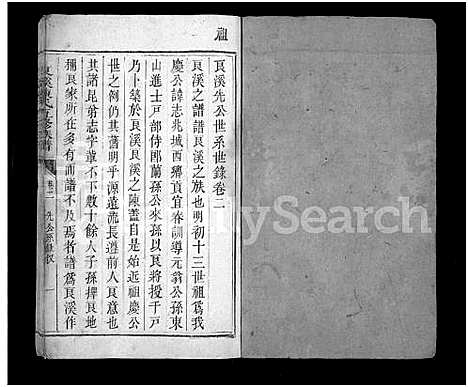 祖
艮溪先公世系世錄卷二
艮溪之譜譜艮溪之族也明初十三世祖爲我
慶公諱志兆城西鄉貢宜春訓導元翁公孫東
山進士戸部侍郎蘭孫公來孫以艮將授千戸
乃卜築於艮溪艮溪之陳蓋自是始近祖慶公
世之例仍其舊明乎源遠流長遵前人良意也
其諸昆翁志字輩不下數十餘人子孫押艮地
獮艮家所在多有而譜不及焉者譜爲艮溪作
卷二
先公系世錄
一
MySearch